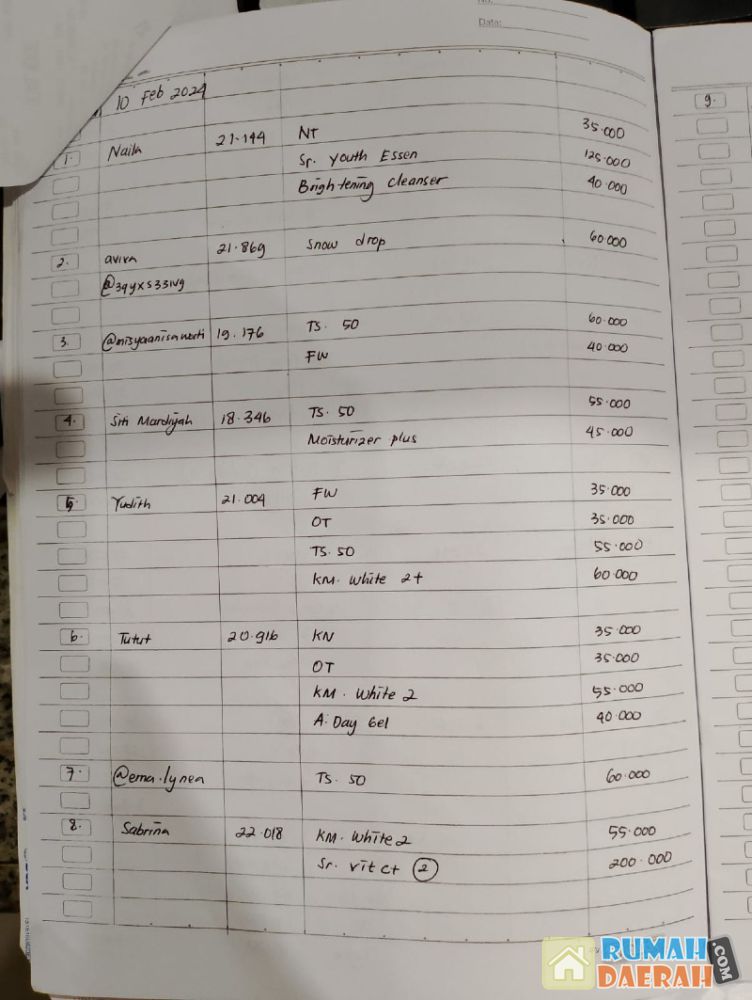 No:
Date:
10 Feb 2024
9.
1. Naila 21.144 NT 35.000
Sr. Youth Essen 125.000
Brightening cleanser 40.000
2. avira 21.869 Snow drop 60.000
3. 19.176 TS. 50 60.000
FW 40.000
4. Siti Mardiyah 18.346 TS. 50 55.000
Moisturizer plus 45.000
5. Yudith 21.004 FW 35.000
OT 35.000
TS. 50 55.000
KM. White 2+ 60.000
6. Tutut 20.916 KN 35.000
OT 35.000
KM. White 2 55.000
A. Day Gel 40.000
7. @ema.lynea TS. 50 60.000
8. Sabrina 22.018 KM. White 2 55.000
Sr. vit c+ 2 200.000
RUMAH
DAERAH
.COM